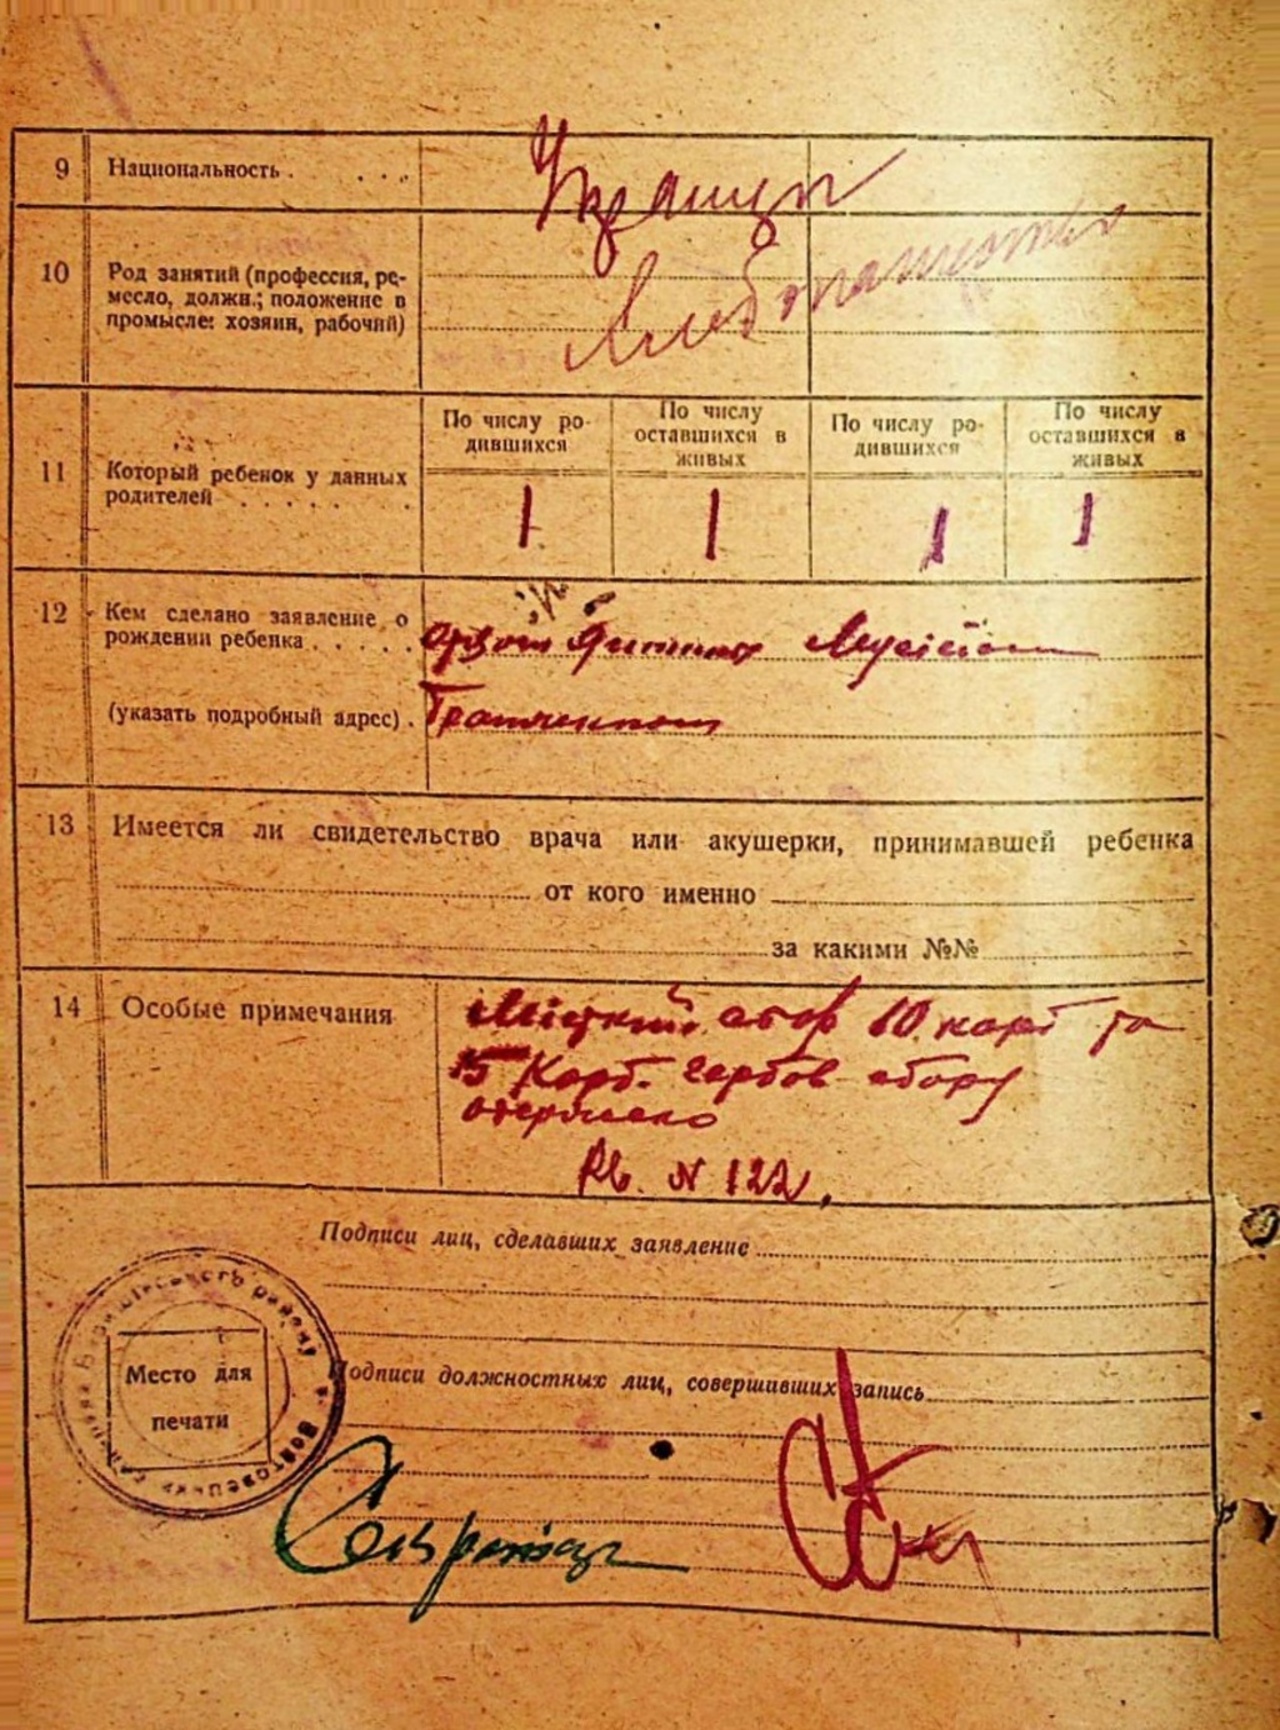 9 Национальность . . . . Украинцы
10 Род занятий (профессия, ре-
месло, должн.; положение в
промысле: хозяин, рабочий)
Хлібопашество
По числу ро-
дившихся
По числу
оставшихся в
живых
По числу ро-
дившихся
По числу
оставшихся в
живых
11 Который ребенок у данных
родителей . . . . . .
1 1 1 1
12 Кем сделано заявление о
рождении ребенка . . . . .
(указать подробный адрес) .
13 Имеется ли свидетельство врача или акушерки, принимавшей ребенка
от кого именно
за какими №№
14 Особые примечания
збор 10 карб та
15 Карб. гербов збору
одержано
Кв. N 122.
Подписи лиц, сделавших заявление
Место для
печати
Подписи должностных лиц, совершивших запись